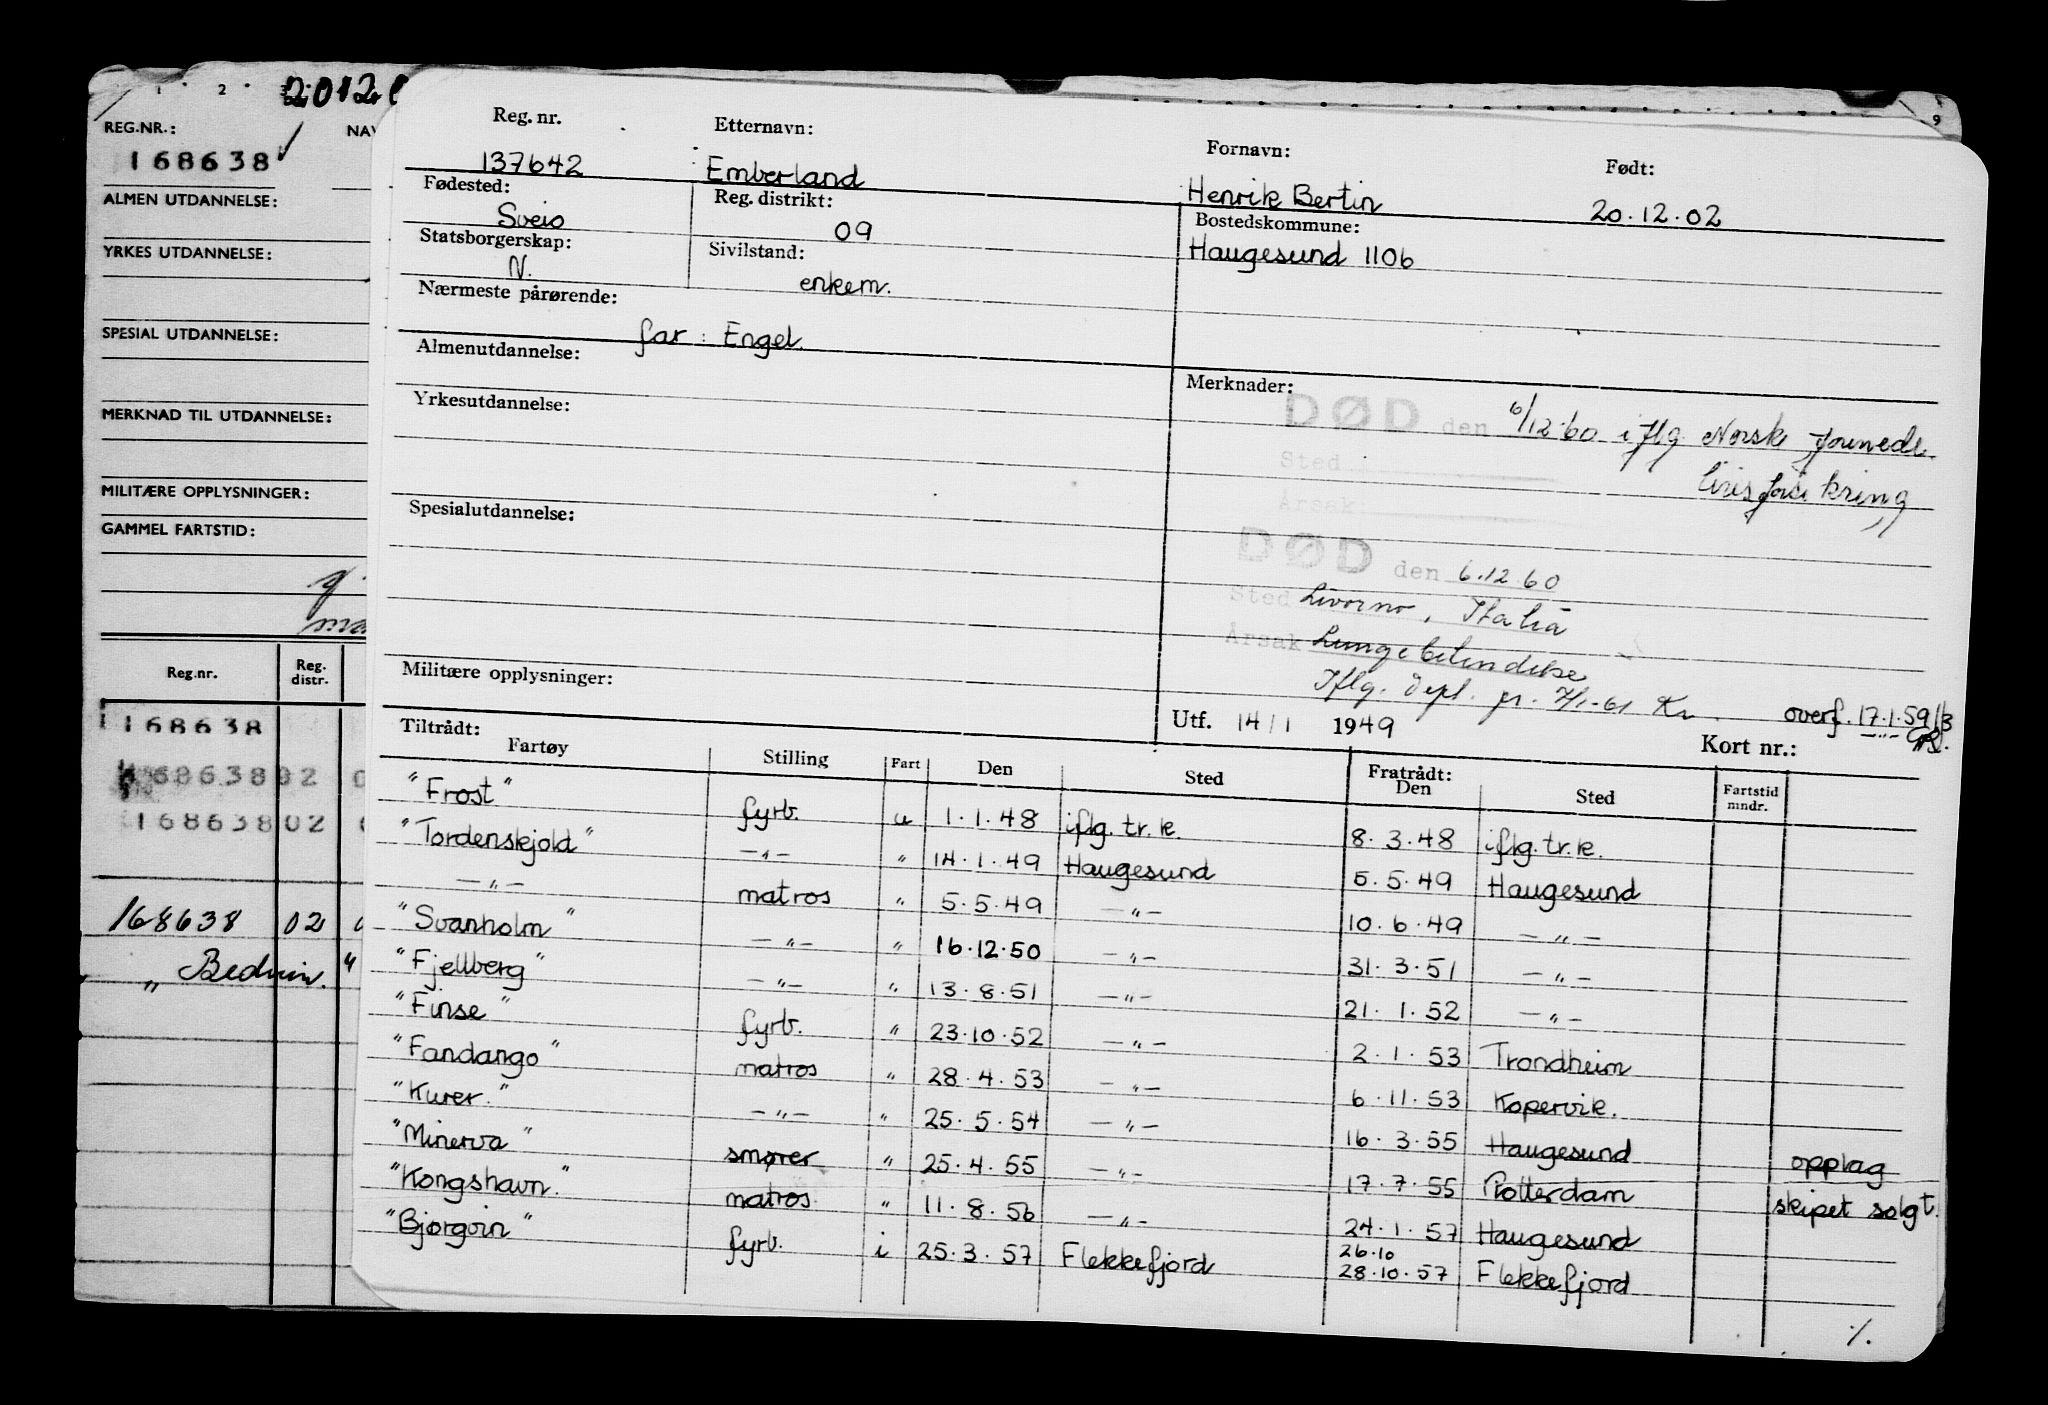 1 2 3 2012
REG.NR.: NAV
168638 ✓
ALMEN UTDANNELSE:
YRKES UTDANNELSE:
SPESIAL UTDANNELSE:
MERKNAD TIL UTDANNELSE:
MILITÆRE OPPLYSNINGER:
GAMMEL FARTSTID:
Reg.nr. Reg. distr.
168638
6863802 0
16863802
168638 02
„ Beduin. "
9
Reg. nr. Etternavn: Fornavn: Født:
137642 Emberland Henrik Bertin 20.12.02
Fødested: Reg. distrikt: Bostedskommune:
Sveio 09 Haugesund 1106
Statsborgerskap: Sivilstand:
N. enkem.
Nærmeste pårørende:
far: Engel.
Almenutdannelse: Merknader:
Yrkesutdannelse:
DØD den 6/12.60 iflg. Norsk
Sted
Årsak:
Spesialutdannelse:
DØD den 6.12.60
Sted Livorno, Italia
Årsak Lungebetendelse
Iflg. dept. pr. 7/1-61 Kr.
Militære opplysninger:
overf. 17.1.59
Utf. 14/1 1949 Kort nr.:
Tiltrådt: Fratrådt:
Fartøy Stilling Fart Den Sted Den Sted Fartstid mndr.
"Frost" fyrb. u 1.1.48 iflg. tr.k. 8.3.48 iflg. tr.k.
"Tordenskjold" —"— " 14.1.49 Haugesund 5.5.49 Haugesund
—"— matros " 5.5.49 —"— 10.6.49 —"—
"Svanholm" —"— " 16.12.50 —"— 31.3.51 —"—
"Fjellberg" —"— " 13.8.51 —"— 21.1.52 —"—
"Finse" fyrb. " 23.10.52 —"— 2.1.53 Trondheim
"Fandango" matros " 28.4.53 —"— 6.11.53 Kopervik.
"Kurer." —"— " 25.5.54 —"— 16.3.55 Haugesund opplag
"Minerva" smører " 25.4.55 —"— 17.7.55 Rotterdam skipet solgt.
"Kongshavn." matros " 11.8.56 —"— 24.1.57 Haugesund
"Bjørgvin" fyrb. i 25.3.57 Flekkefjord 26.10 28.10.57 Flekkefjord
./.